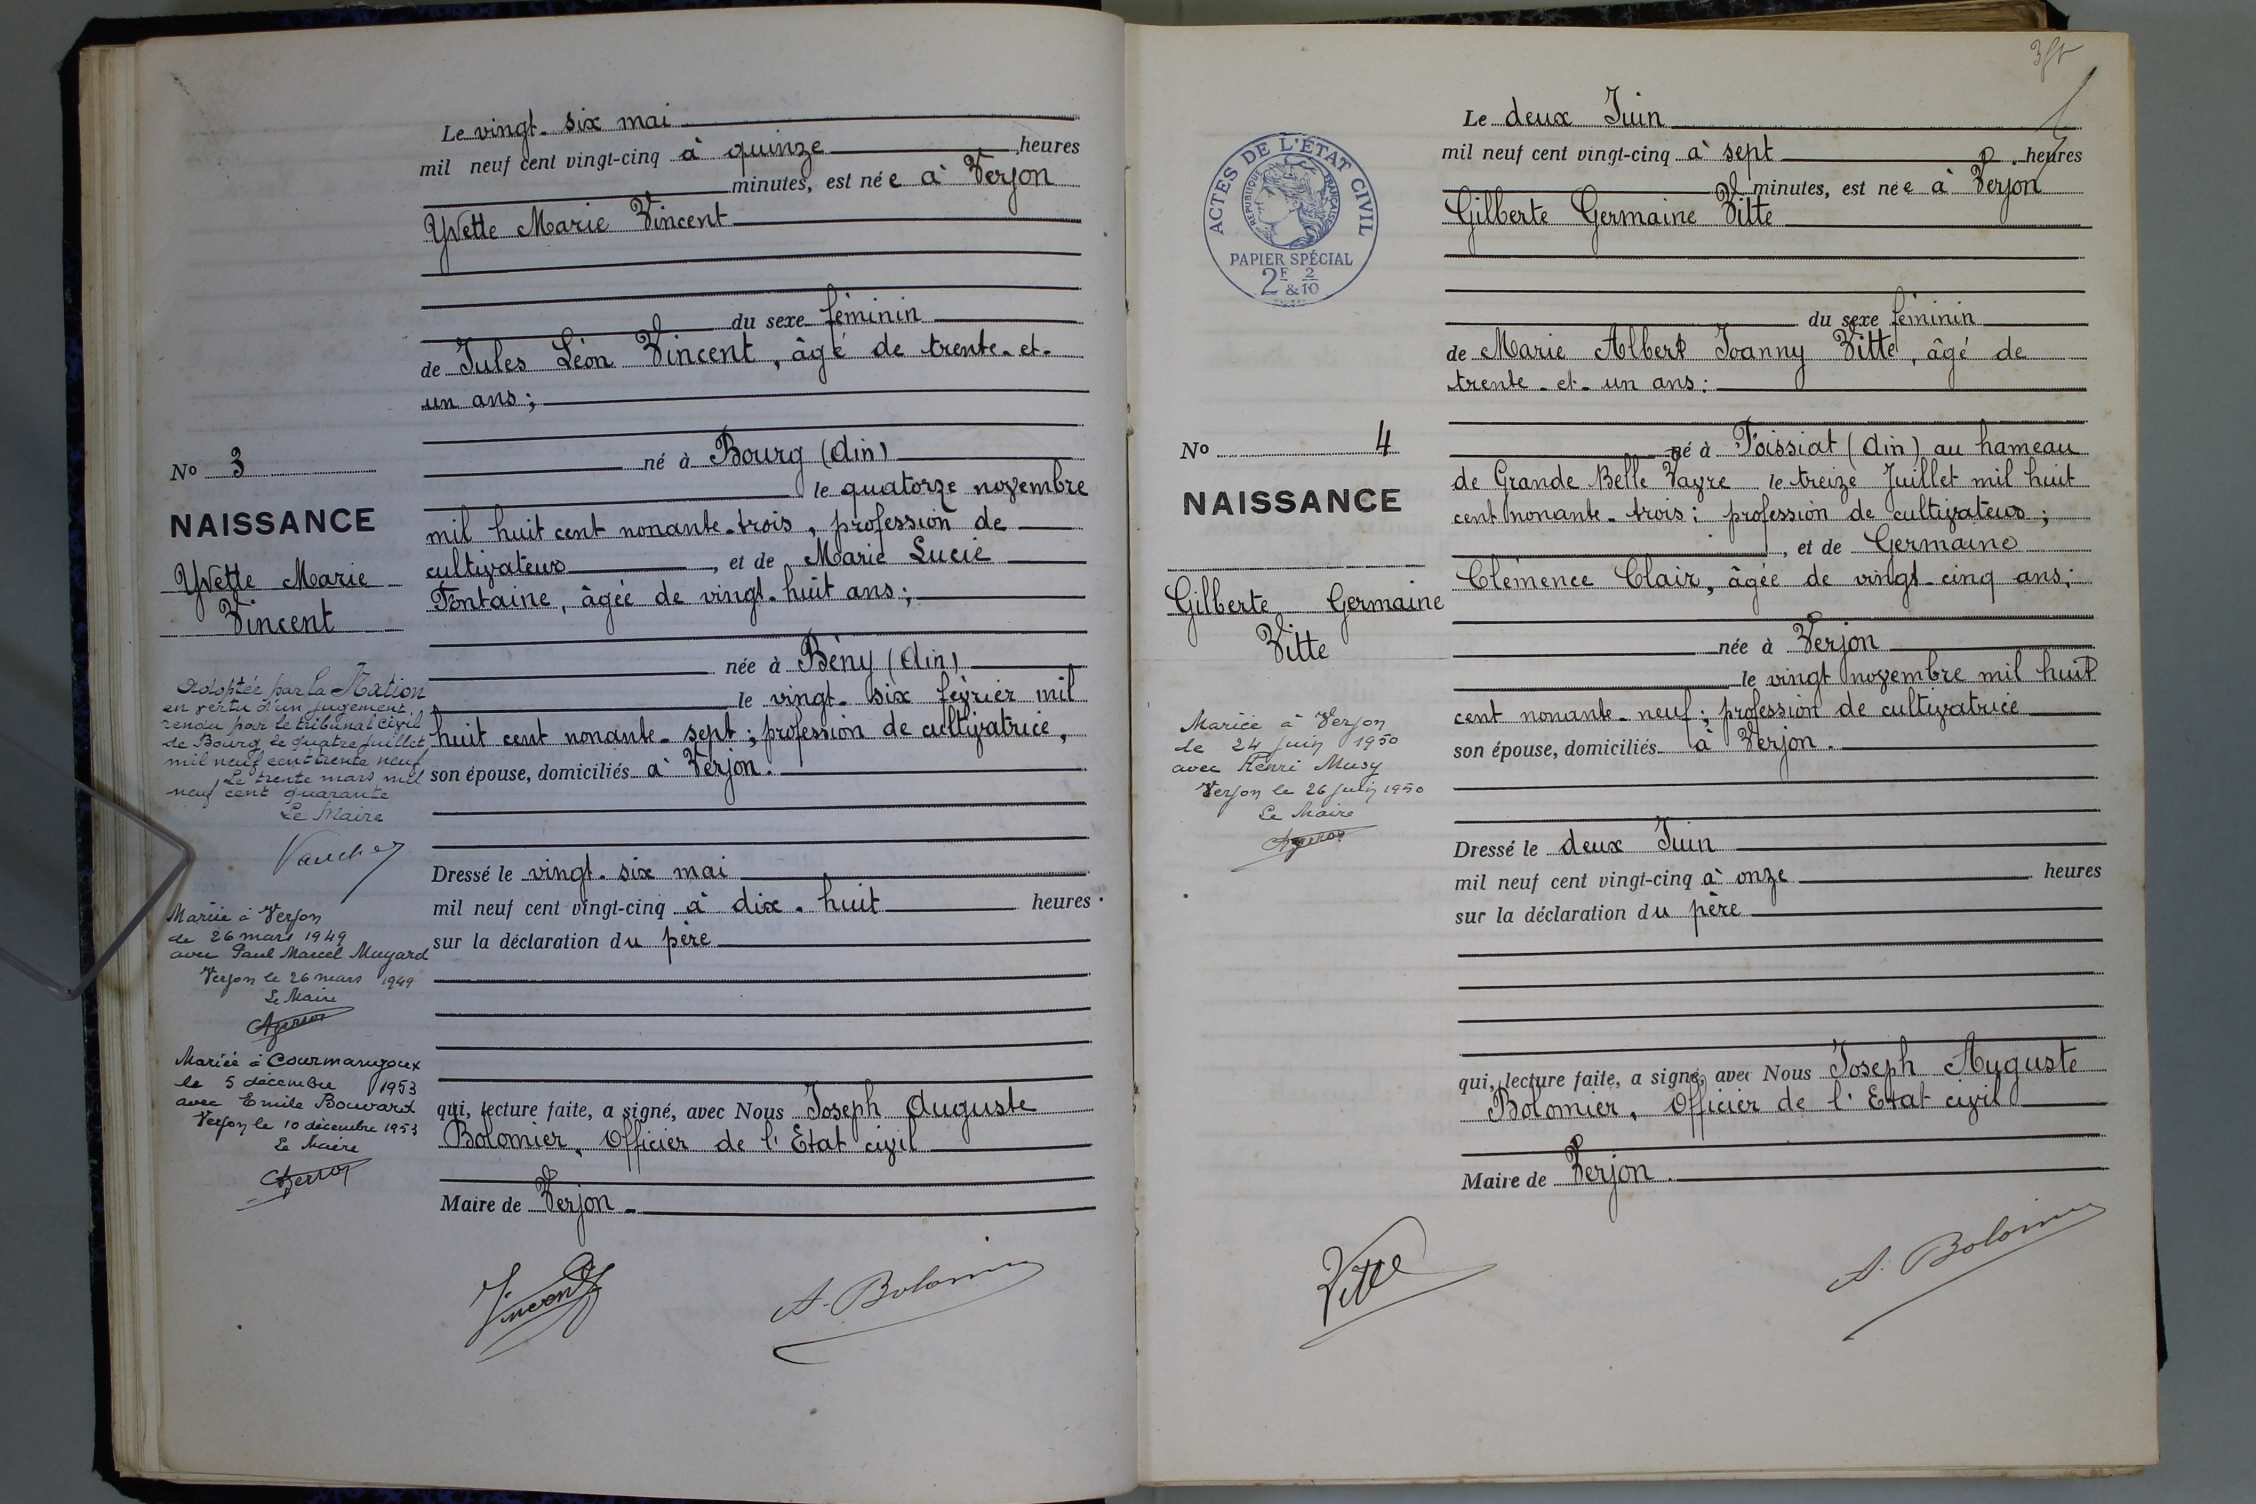 Le vingt-six mai
mil neuf cent vingt-cinq à quinze heures
minutes, est née à Verjon
Yvette Marie Vincent
du sexe féminin
de Jules Léon Vincent, âgé de trente-et-
un ans;
né à Bourg (Ain)
le quatorze novembre
mil huit cent nonante-trois, profession de
cultivateur, et de Marie Lucie
Fontaine, âgée de vingt-huit ans;
née à Bény (Ain)
le vingt-six février mil
huit cent nonante-sept; profession de cultivatrice,
son épouse, domiciliés à Verjon.
Dressé le vingt-six mai
mil neuf cent vingt-cinq à dix-huit heures
sur la déclaration du père
qui, lecture faite, a signé, avec Nous Joseph Auguste
Bolomier, Officier de l'Etat civil
Maire de Verjon
Vincent
A. Bolomier
No 3
NAISSANCE
Yvette Marie
Vincent
Adoptée par la Nation
en vertu d'un jugement
rendu par le tribunal civil
de Bourg le quatre juillet
mil neuf cent trente neuf
Le trente mars mil
neuf cent quarante
Le Maire
Mariée à Verjon
le 26 mars 1949
avec Paul Marcel Mugard
Verjon le 26 mars 1949
Le Maire
Mariée à Courmangoux
le 5 décembre 1953
avec Emile Bouvard
Verjon le 10 décembre 1953
Le Maire
Le deux Juin
mil neuf cent vingt-cinq à sept heures
minutes, est née à Verjon
Gilberte Germaine Vitte
du sexe féminin
de Marie Albert Joanny Vitte, âgé de
trente-et-un ans:
né à Foissiat (Ain) au hameau
de Grande Belle Vavre le treize Juillet mil huit
cent nonante-trois; profession de cultivateur;
, et de Germaine
Clémence Clair, âgée de vingt-cinq ans;
née à Verjon
le vingt novembre mil huit
cent nonante-neuf; profession de cultivatrice
son épouse, domiciliés à Verjon.
Dressé le deux Juin
mil neuf cent vingt-cinq à onze heures
sur la déclaration du père
qui, lecture faite, a signé, avec Nous Joseph Auguste
Bolomier, Officier de l'Etat civil
Maire de Verjon.
Vitte
A. Bolomier
ACTES DE L'ÉTAT CIVIL
RÉPUBLIQUE FRANÇAISE
PAPIER SPÉCIAL
2F & 2/10
No 4
NAISSANCE
Gilberte Germaine
Vitte
Mariée à Verjon
le 24 juin 1950
avec Henri Musy
Verjon le 26 juin 1950
Le Maire